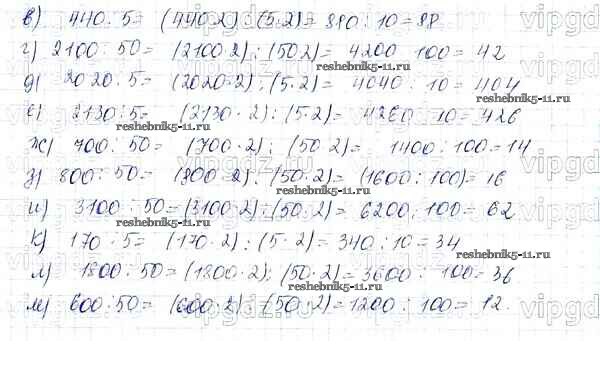 в) 440 : 5 = (440·2) : (5·2) = 880 : 10 = 88
г) 2100 : 50 = (2100·2) : (50·2) = 4200 : 100 = 42
reshebnik5-11.ru
д) 2020 : 5 = (2020·2) : (5·2) = 4040 : 10 = 404
reshebnik5-11.ru
е) 2130 : 5 = (2130·2) : (5·2) = 4260 : 10 = 426
reshebnik5-11.ru
ж) 700 : 50 = (700·2) : (50·2) = 1400 : 100 = 14
з) 800 : 50 = (800·2) : (50·2) = (1600 : 100) = 16
reshebnik5-11.ru
и) 3100 : 50 = (3100·2) : (50·2) = 6200 : 100 = 62
reshebnik5-11.ru
к) 170 : 5 = (170·2) : (5·2) = 340 : 10 = 34
reshebnik5-11.ru
л) 1800 : 50 = (1800·2) : (50·2) = 3600 : 100 = 36
м) 600 : 50 = (600·2) : (50·2) = 1200 : 100 = 12.
reshebnik5-11.ru